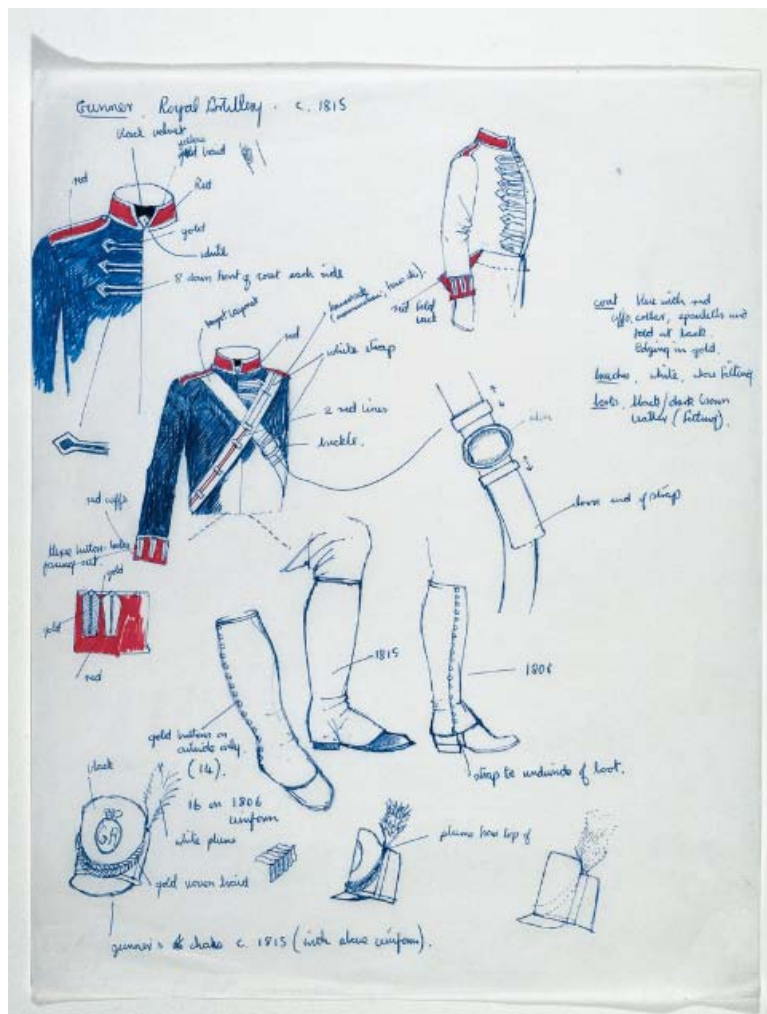 Gunner Royal Artillery . c. 1815
black velvet
yellow
gold braid
red
Red
gold
white
8 down front of coat each side
red
white strap
2 red lines
buckle.
red fold
back
coat blue with red
cuffs, collar, epaulets and
fold at back.
Edging in gold.
breeches, white, close fitting
boots, black/dark brown
leather (fitting).
loose end of strap
red cuffs
three button-holes
facing out.
gold
gold
red
1815
1806
gold buttons on
outside only.
(14).
16 on 1806
uniform
strap to underside of boot.
black
GR
white plume
gold woven braid
plume from top of
gunner's shako c. 1815 (with above uniform).